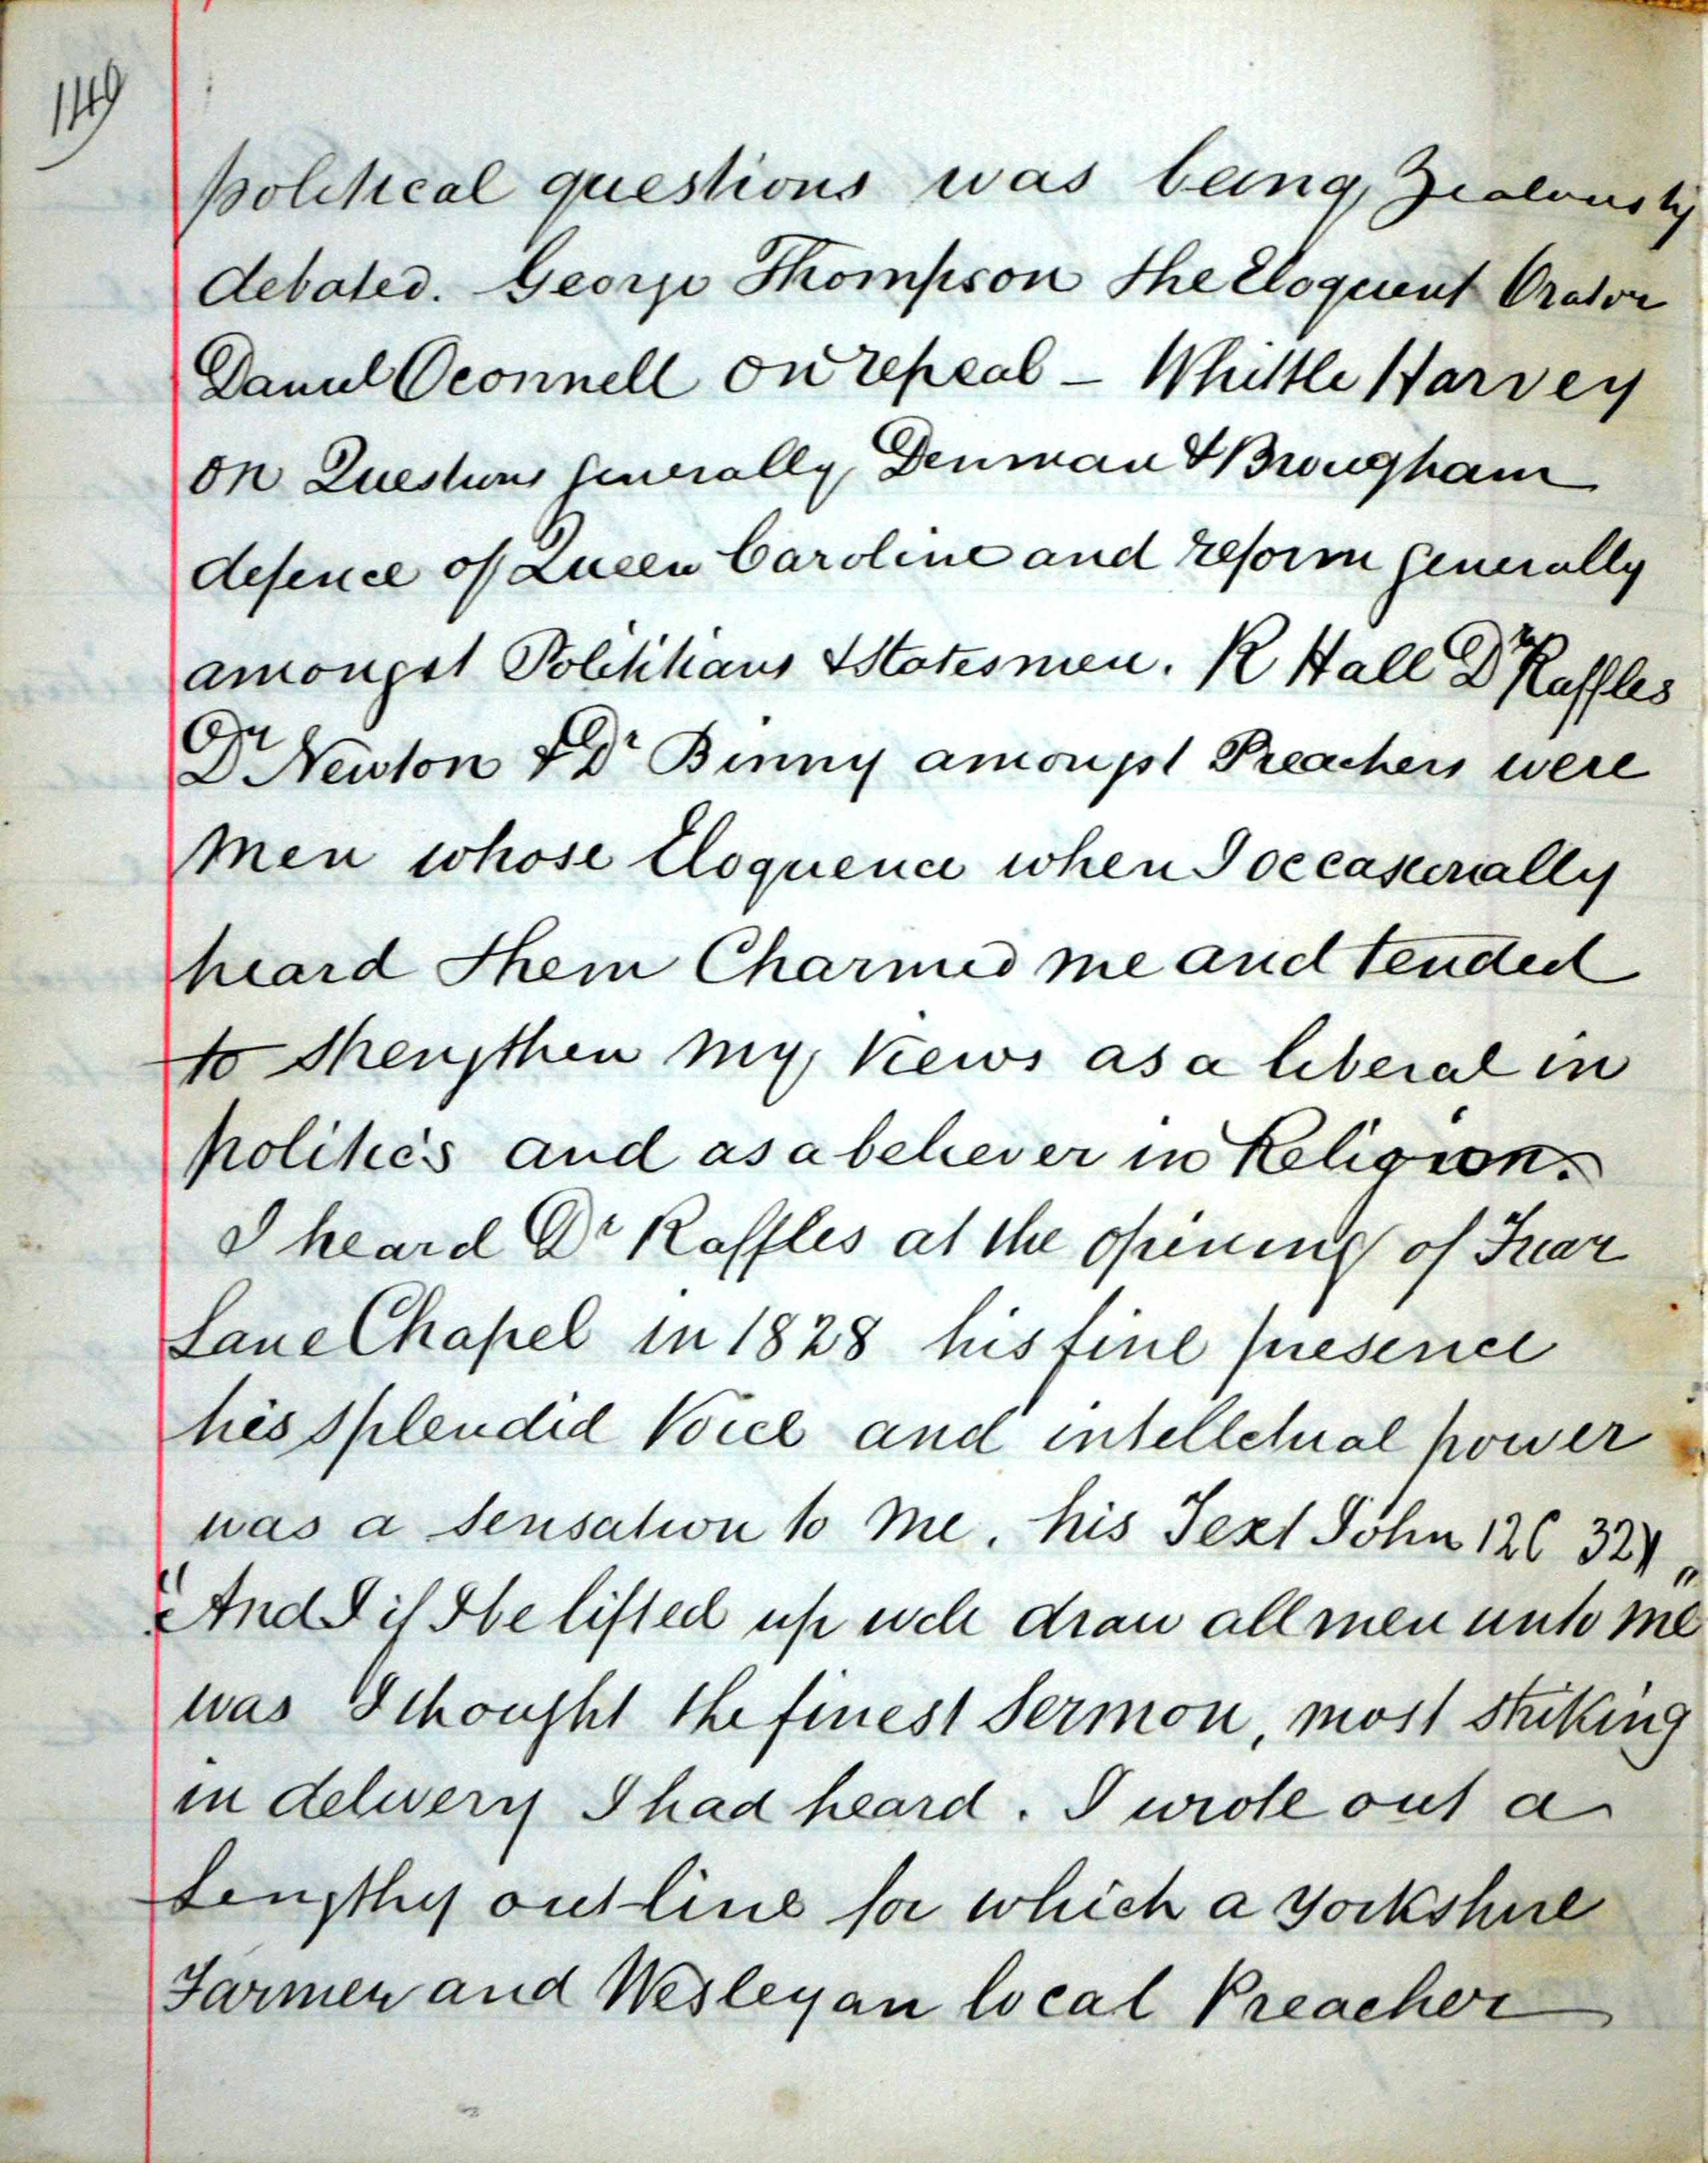 149
political questions was being Zealously
debated. George Thompson the Eloquent Orator
Daniel Oconnell on repeal – Whittle Harvey
on Questions generally, Denman & Brougham
defence of Queen Caroline and reform generally
amongst Polititians & Statesmen. R Hall Dr Raffles
Dr Newton & Dr Binny amongst Preachers were
Men whose Eloquence when I occasionally
heard them Charmed me and tended
to strengthen my Views as a liberal in
politics and as a believer in Religion.
I heard Dr Raffles at the opening of Friar
Lane Chapel in 1828 his fine presence
his splendid Voice and intellectual power
was a sensation to me. his Text John 12C 32V
"And I if I be lifted up will draw all men unto me"
was I thought the finest Sermon, most striking
in delivery I had heard. I wrote out a
Lengthy out-line for which a Yorkshire
Farmer and Wesleyan local Preacher